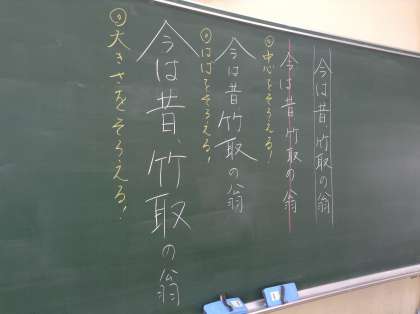 今は昔、竹取の翁
今は昔竹取の翁
①中心をそろえる!
今は昔竹取の翁
②はばをそろえる!
今は昔、竹取の翁
③大きさをそろえる!